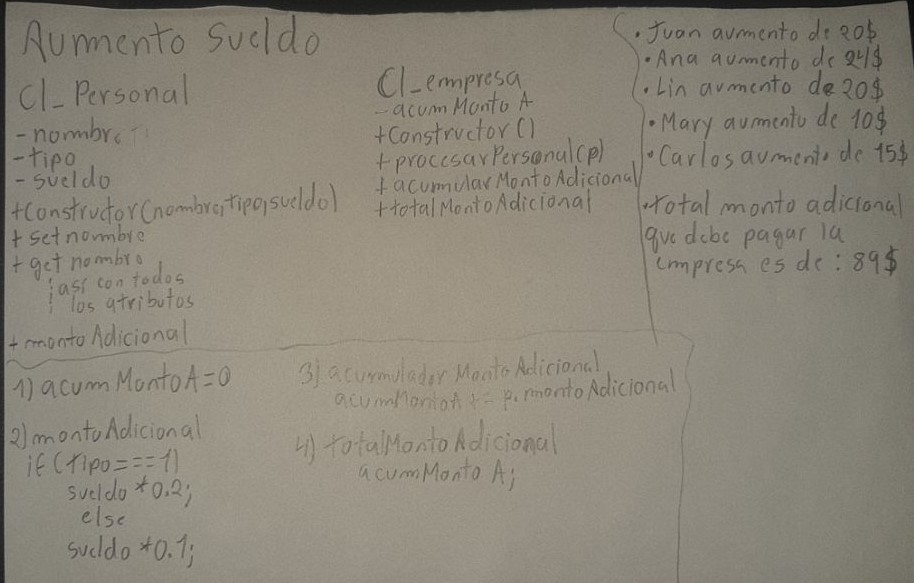 Aumento sueldo
Cl_Personal
- nombre
- tipo
- sueldo
+ Constructor(nombre, tipo, sueldo)
+ setnombre
+ getnombre
así con todos
los atributos
+ montoAdicional
Cl_empresa
- acumMontoA
+ Constructor()
+ procesarPersonal(p)
+ acumularMontoAdicional
+ totalMontoAdicional
• Juan aumento de 20$
• Ana aumento de 24$
• Lin aumento de 20$
• Mary aumento de 10$
• Carlos aumento de 15$
• Total monto adicional
que debe pagar la
empresa es de : 89$
1) acumMontoA=0
2) montoAdicional
if(tipo===1)
sueldo *0.2;
else
sueldo *0.1;
3) acumulador MontoAdicional
acumMontoA += p.montoAdicional
4) totalMontoAdicional
acumMontoA;